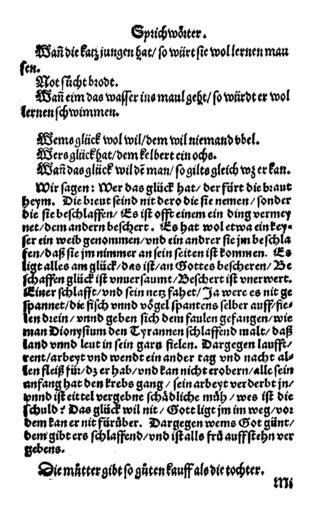 Sprichwörter.
Wañ die katz jungen hat/ so würt sie wol lernen mau
sen.
Not sücht brodt.
Wañ eim das wasser ins maul geht/ so würdt er wol
lernen schwimmen.
Wems glück wol wil/ dem wil niemand vbel.
Wers glück hat/ dem kelbert ein ochs.
Wañ das glück wil dẽ man/ so gilts gleich wz er kan.
Wir sagen: Wer das glück hat/ der fürt die braut
heym. Die breut seind nit dero die sie nemen/ sonder
die sie beschlaffen/ Es ist offt einem ein ding vermey
net/ dem andern beschert. Es hat wol etwa ein key-
ser ein weib genommen/ vnd ein andrer sie jm beschla
fen/ daß sie jm nimmer an sein seiten ist kommen. Es
ligt alles am glück/ das ist/ an Gottes bescheren/ Be
schaffen glück ist vnuersaumt/ Beschert ist vnerwert.
Einer schlafft/ vnd sein netz fahet/ Ja were es nit ge
spannet/ die fisch vnnd vögel spantens selber auff/ fie
len drein/ vnnd geben sich dem faulen gefangen/ wie
man Dionysium den Tyrannen schlaffend malt/ daß
land vnnd leut in sein garn fielen. Dargegen laufft-
rent/ arbeyt vnd wendt ein ander tag vnd nacht al-
len fleiß für/ dz er hab/ vnd kan nicht erobern/ alle sein
anfang hat den krebs gang/ sein arbeyt verderbt jn/
vnnd ist eittel vergebne schädliche müh/ wes ist die
schuld? Das glück wil nit/ Gott ligt jm im weg/ vor
dem kan er nit fürüber. Dargegen wems Got günt/
dem gibt ers schlaffend/ vnd ist alls frü auffstehn ver
gebens.
Die mütter gibt so güten kauff als die tochter.